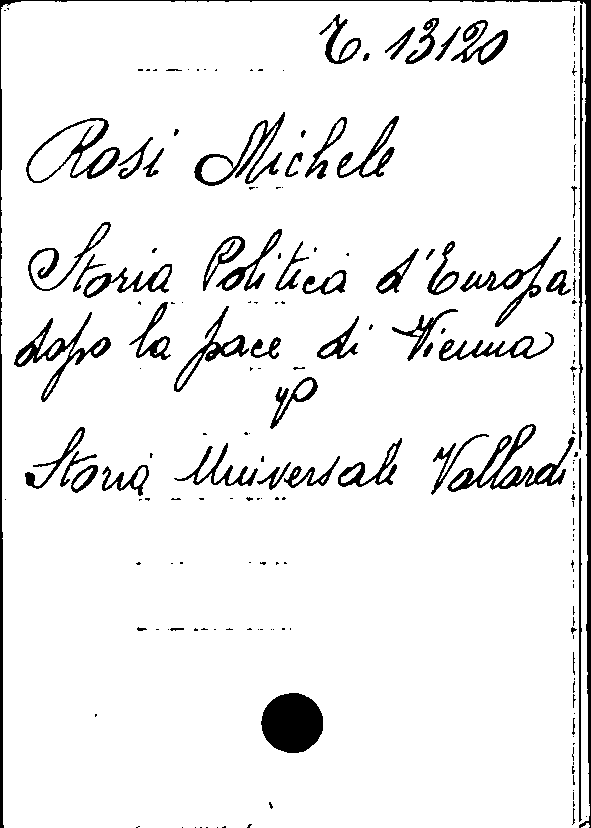 T. 13120
Rosi Michele
Storia Politica d'Europa
dopo la pace di Vienna
Storia Universale Vallardi